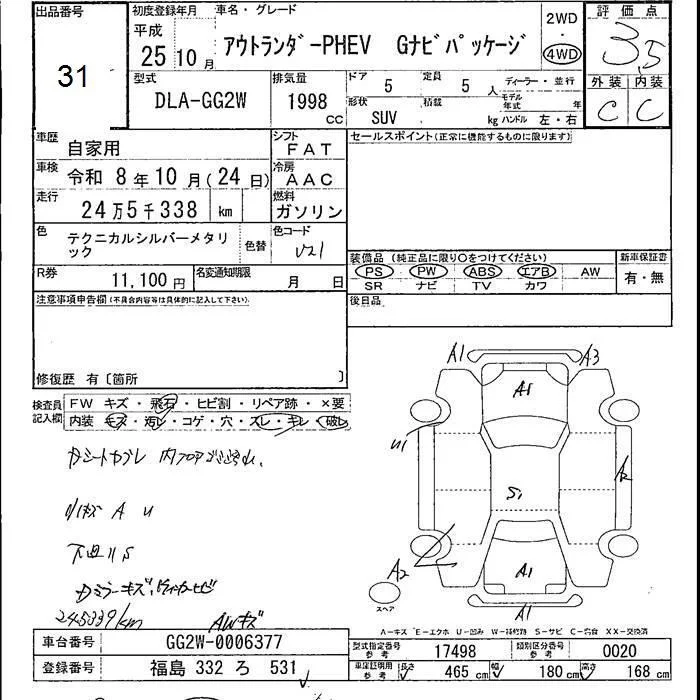 出品番号
31
初度登録年月
平成
25 10月
車名・グレード
アウトランダ-PHEV Gナビパッケージ
2WD
・
4WD
評価点
3.5
外装 内装
C C
型式
DLA-GG2W
排気量
1998
cc
ドア
5
定員
5 人
ディーラー・並行
形状
SUV
積載
kg
モデル
年式
年
ハンドル 左・右
車歴
自家用
シフト
FAT
車検
令和 8年 10月(24日)
冷房
AAC
走行
24万5千338 km
燃料
ガソリン
色
テクニカルシルバーメタリ
ック
色替
色コード
V21
R券
11,100円
名変通知期限
月 日
セールスポイント(正常に機能するものに限ります)
装備品(純正品に限り○をつけてください)
PS PW ABS エアB AW
SR ナビ TV カワ
新車保証書
有・無
後日品
注意事項申告欄(不具合内容等は具体的に記入して下さい)
修復歴 有〔箇所 〕
検査員
記入欄
FW キズ・飛石・ヒビ割・リペア跡・×要
内装 キズ・汚レ・コゲ・穴・スレ・キレ・破レ
A1
A3
A1
U1
A2
S1
A2
A1
A1
スペア
小キズ A U
下廻りS
245339/km
AWキズ
A-キズ E-エクボ U-凹み W-補修跡 S-サビ C-腐食 XX-交換済
車台番号
GG2W-0006377
登録番号
福島 332 ろ 531
型式指定番号
参考
17498
類別区分番号
参考
0020
車庫証明用
参考
長さ
465 cm
幅
180 cm
高さ
168 cm